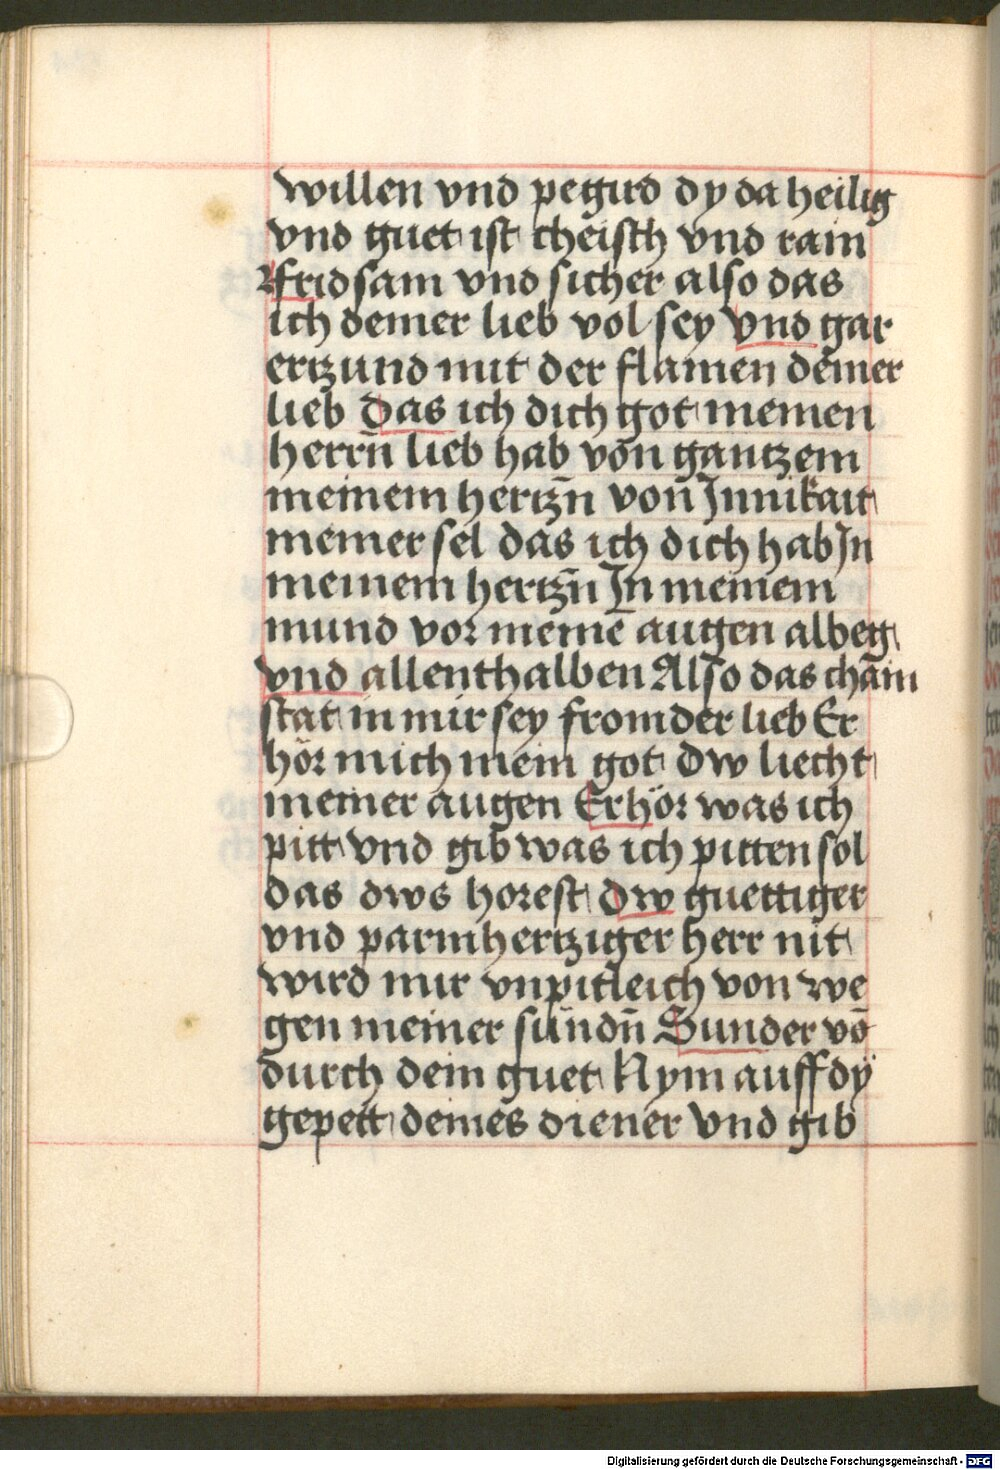 willen vnd pegird dy da heilig
vnd guet ist cheisch vnd rain
fridsam vnd sicher also das
ich deiner lieb vol sey vnd gar
ertzund mit der flamen deiner
lieb Das ich dich got meinen
herrn̄ lieb hab von gantzem
meinem hertzn̄ von Jnnikait
meiner sel das ich dich hab Jn
meinem hertzn̄ Jn meinem
mund vor meinē augen albeg
vnd allenthalben Also das chain
stat in mir sey fromder lieb Er
hör mich mein got Dw liecht
meiner augen Erhör was ich
pitt vnd gib was ich pitten sol
das dws horest dw guettiger
vnd parmhertziger herr nit
wird mir vnpitleich von we
gen meiner sündn̄ Sunder vō
durch dein guet Nym auff dÿ
gepett deines diener vnd gib
Digitalisierung gefördert durch die Deutsche Forschungsgemeinschaft - DFG